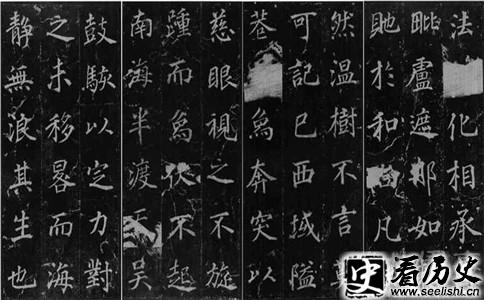 法化相承
毗盧遮那如
貤於和凡
然温樹不言
可記已西域隘
巷象奔突以
慈眼視之不旋
踵而象伏不起
南海半渡天吴
鼓駭以定力對
之未移晷而海
靜無浪其生也
史 看历史
www.seelishi.cn